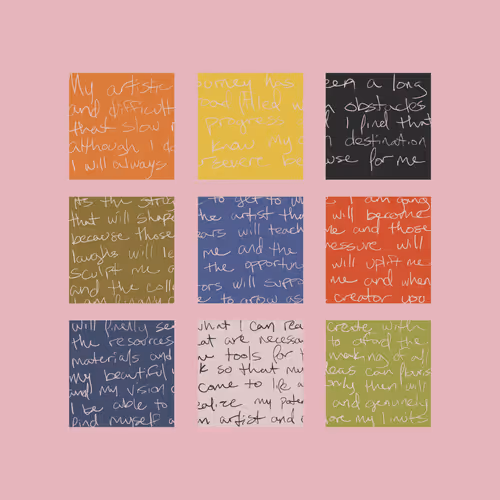 My artistic ourney has een a long
and difficult filled w obstacles
that slow m progress d I find that
although I do know my destination
I will always ersevere be use for me
its the stru to get to w I am going
that will shape he artist tha will become
because those ears will teach me and those
laughs will le me and the essure will
sculpt me a the opportun will uplift me
and the colle ors will supp me and when
am finally e to grow as creator you
will finally see what I can rea create with
the resources at are necessa to afford the
materials and w tools for t making of all
my beautiful k so that my deas can flouris
and my vision come to life a only then will
I be able to ealize my poten and genuinely
find myself a n artist and ore my limits